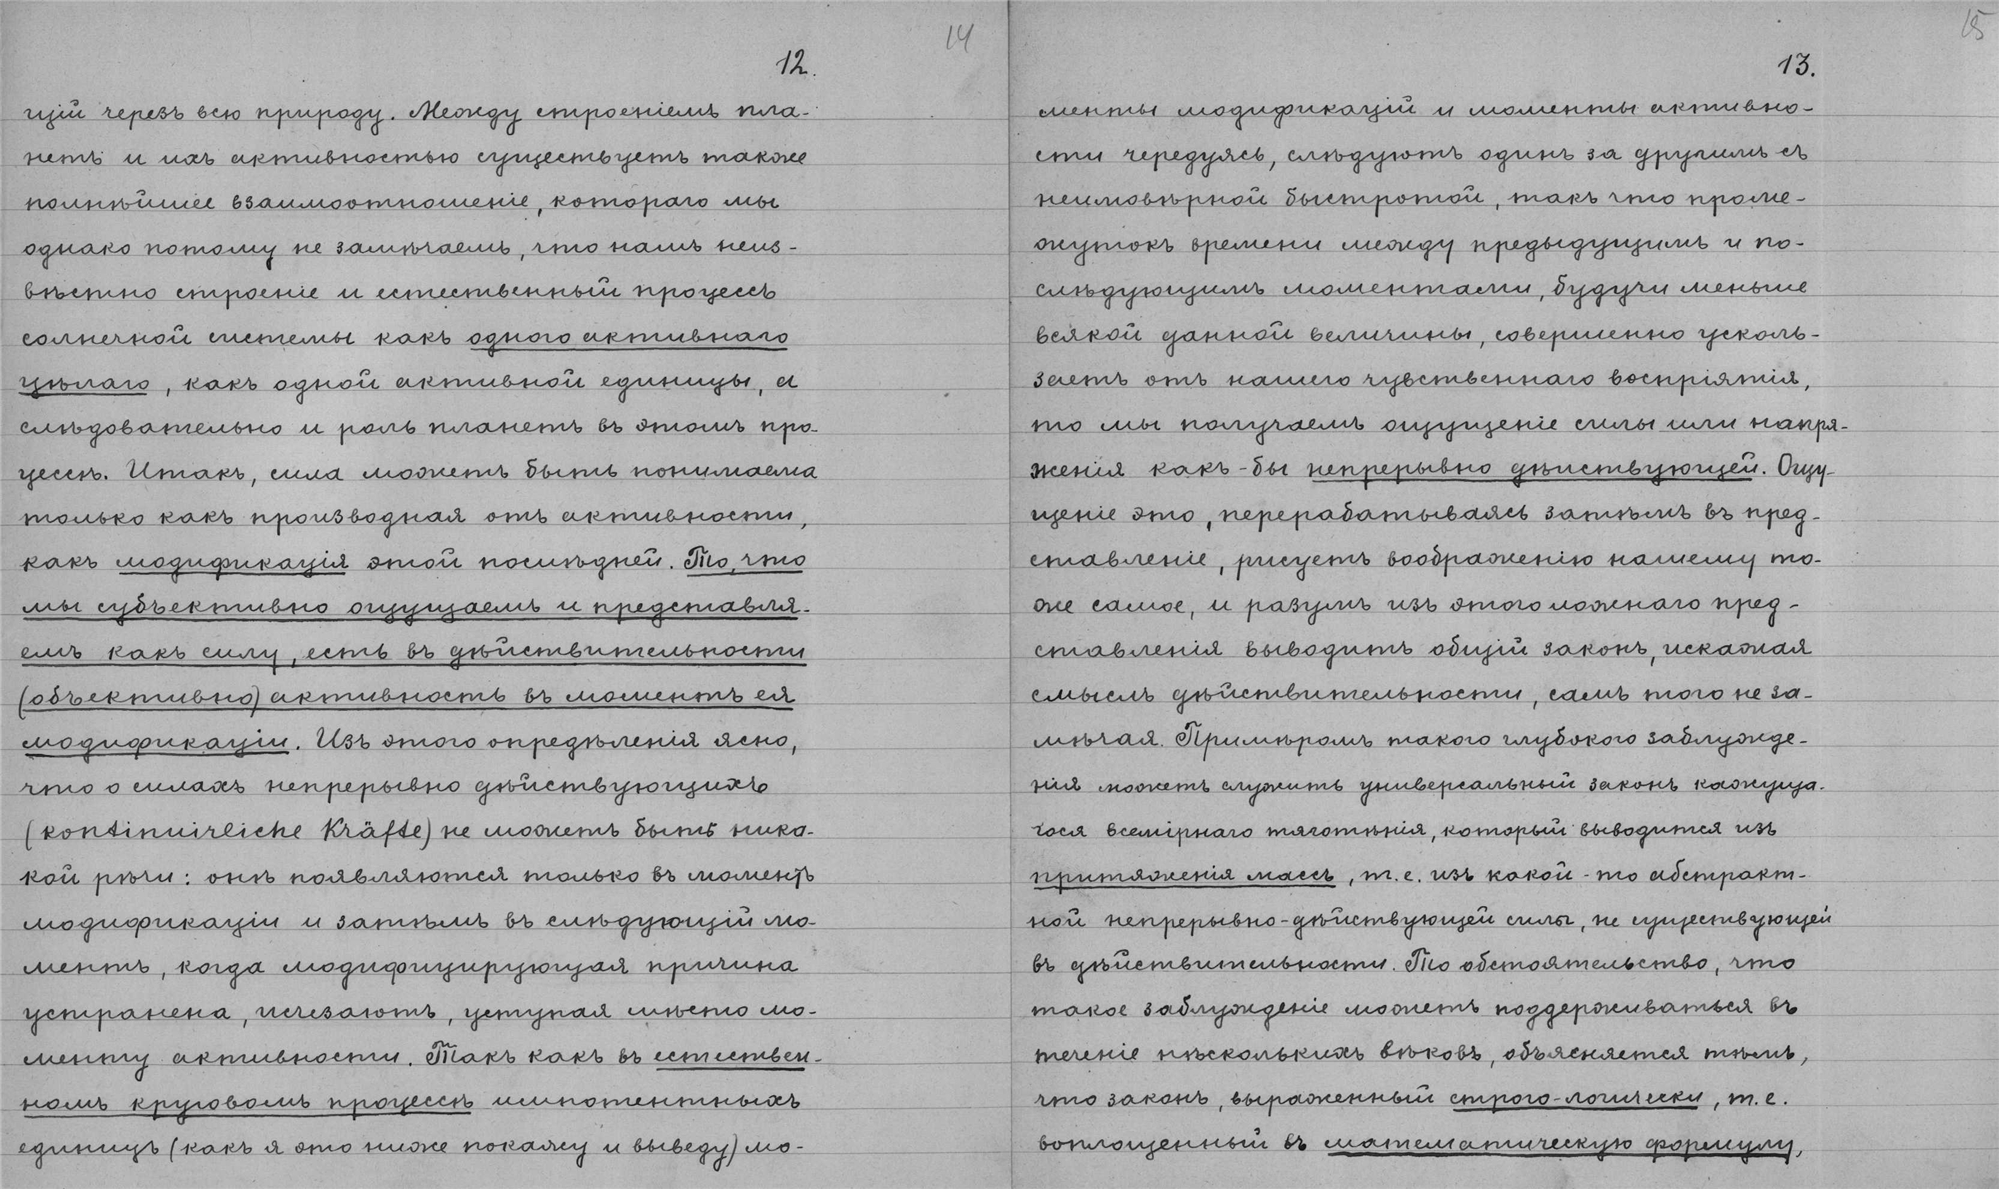 14
12.
щій черезъ всю природу. Между строеніемъ пла-
нетъ и ихъ активностью существуетъ также
полнѣйшее взаимоотношеніе, котораго мы
однако потому не замѣчаемъ, что намъ неиз-
вѣстно строеніе и естественный процессъ
солнечной системы какъ одного активнаго
цѣлаго, какъ одной активной единицы, а
слѣдовательно и роль планетъ въ этомъ про-
цессѣ. Итакъ, сила можетъ быть понимаема
только какъ производная отъ активности,
какъ модификація этой послѣдней. То, что
мы субъективно ощущаемъ и представля-
емъ какъ силу, есть въ дѣйствительности
(объективно) активность въ моментъ ея
модификаціи. Изъ этого опредѣленія ясно,
что о силахъ непрерывно дѣйствующихъ
(kontinuirliche Kräfte) не можетъ быть ника-
кой рѣчи: онѣ появляются только въ моментъ
модификаціи и затѣмъ въ слѣдующій мо-
ментъ, когда модифицирующая причина
устранена, исчезаютъ, уступая мѣсто мо-
менту активности. Такъ какъ въ естествен-
номъ круговомъ процессѣ импотентныхъ
единицъ (какъ я это ниже покажу и выведу) мо-
15
13.
менты модификацій и моменты активно-
сти чередуясь, слѣдуютъ одинъ за другимъ съ
неимовѣрной быстротой, такъ что проме-
жутокъ времени между предыдущимъ и по-
слѣдующимъ моментами, будучи меньше
всякой данной величины, совершенно усколь-
заетъ отъ нашего чувственнаго воспріятія,
то мы получаемъ ощущеніе силы или напря-
женія какъ-бы непрерывно дѣйствующей. Ощу-
щеніе это, перерабатываясь затѣмъ въ пред-
ставленіе, рисуетъ воображенію нашему то-
же самое, и разумъ изъ этого ложнаго пред-
ставленія выводитъ общій законъ, искажая
смыслъ дѣйствительности, самъ того не за-
мѣчая. Примѣромъ такого глубокого заблужде-
нія можетъ служить универсальный законъ кажуща-
гося всемірнаго тяготѣнія, который выводится изъ
притяженія массъ, т.е. изъ какой-то абстракт-
ной непрерывно-дѣйствующей силы, не существующей
въ дѣйствительности. То обстоятельство, что
такое заблужденіе можетъ поддерживаться въ
теченіе нѣсколькихъ вѣковъ, объясняется тѣмъ,
что законъ, выраженный строго-логически, т.е.
воплощенный въ математическую формулу,